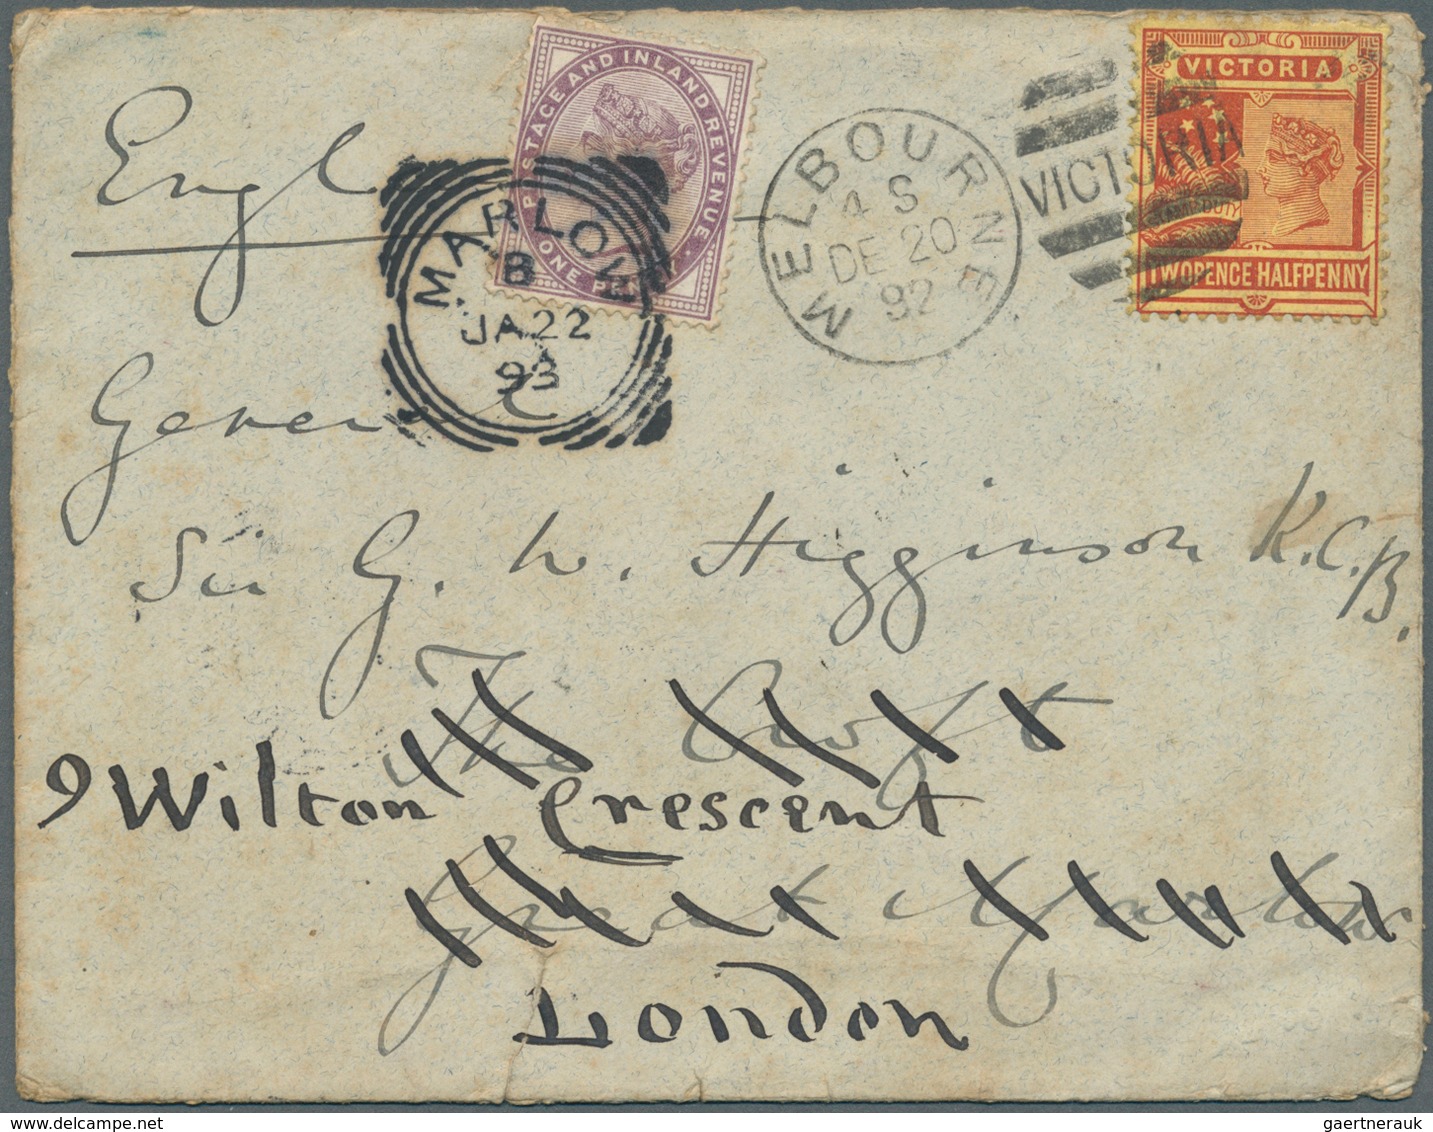 POSTAGE AND INLAND REVENUE
ONE PENNY
VICTORIA
STAMP DUTY
TWOPENCE HALFPENNY
MELBOURNE
4 S
DE 20
92
VICTORIA
MARLOW
B
JA 22
93
Engl
General
Sir G. W. Higginson K.C.B.
The Croft
9 Wilton Crescent
Great Marlow
London
gaertnerauk